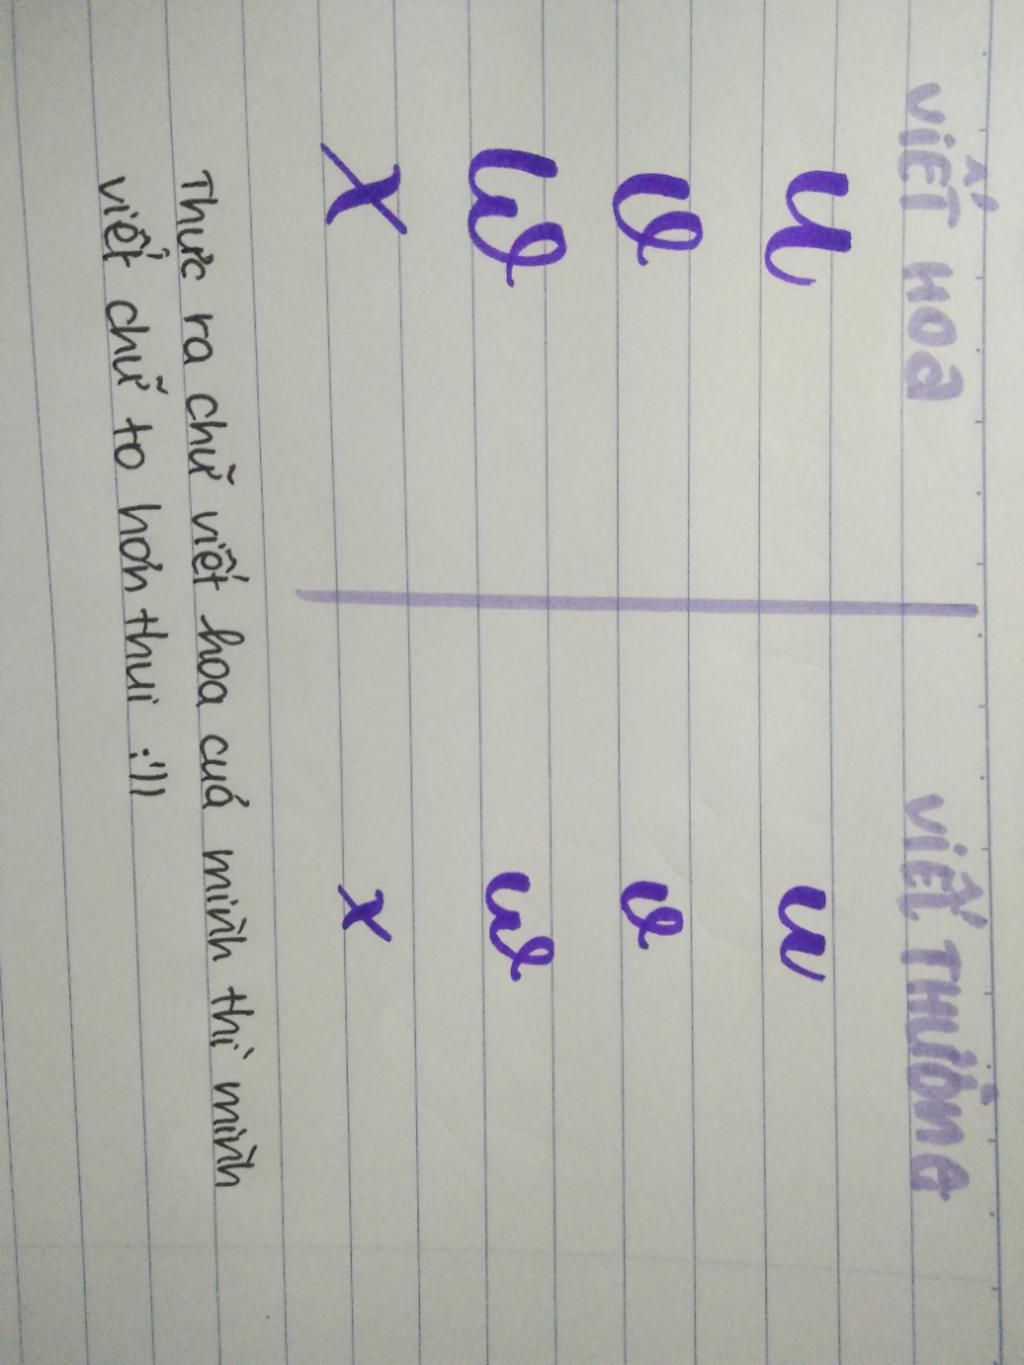 VIẾT HOA VIẾT THƯỜNG
U u
V v
W w
X x
Thực ra chữ viết hoa cuả mình thì mình
viết chữ to hơn thui :'))